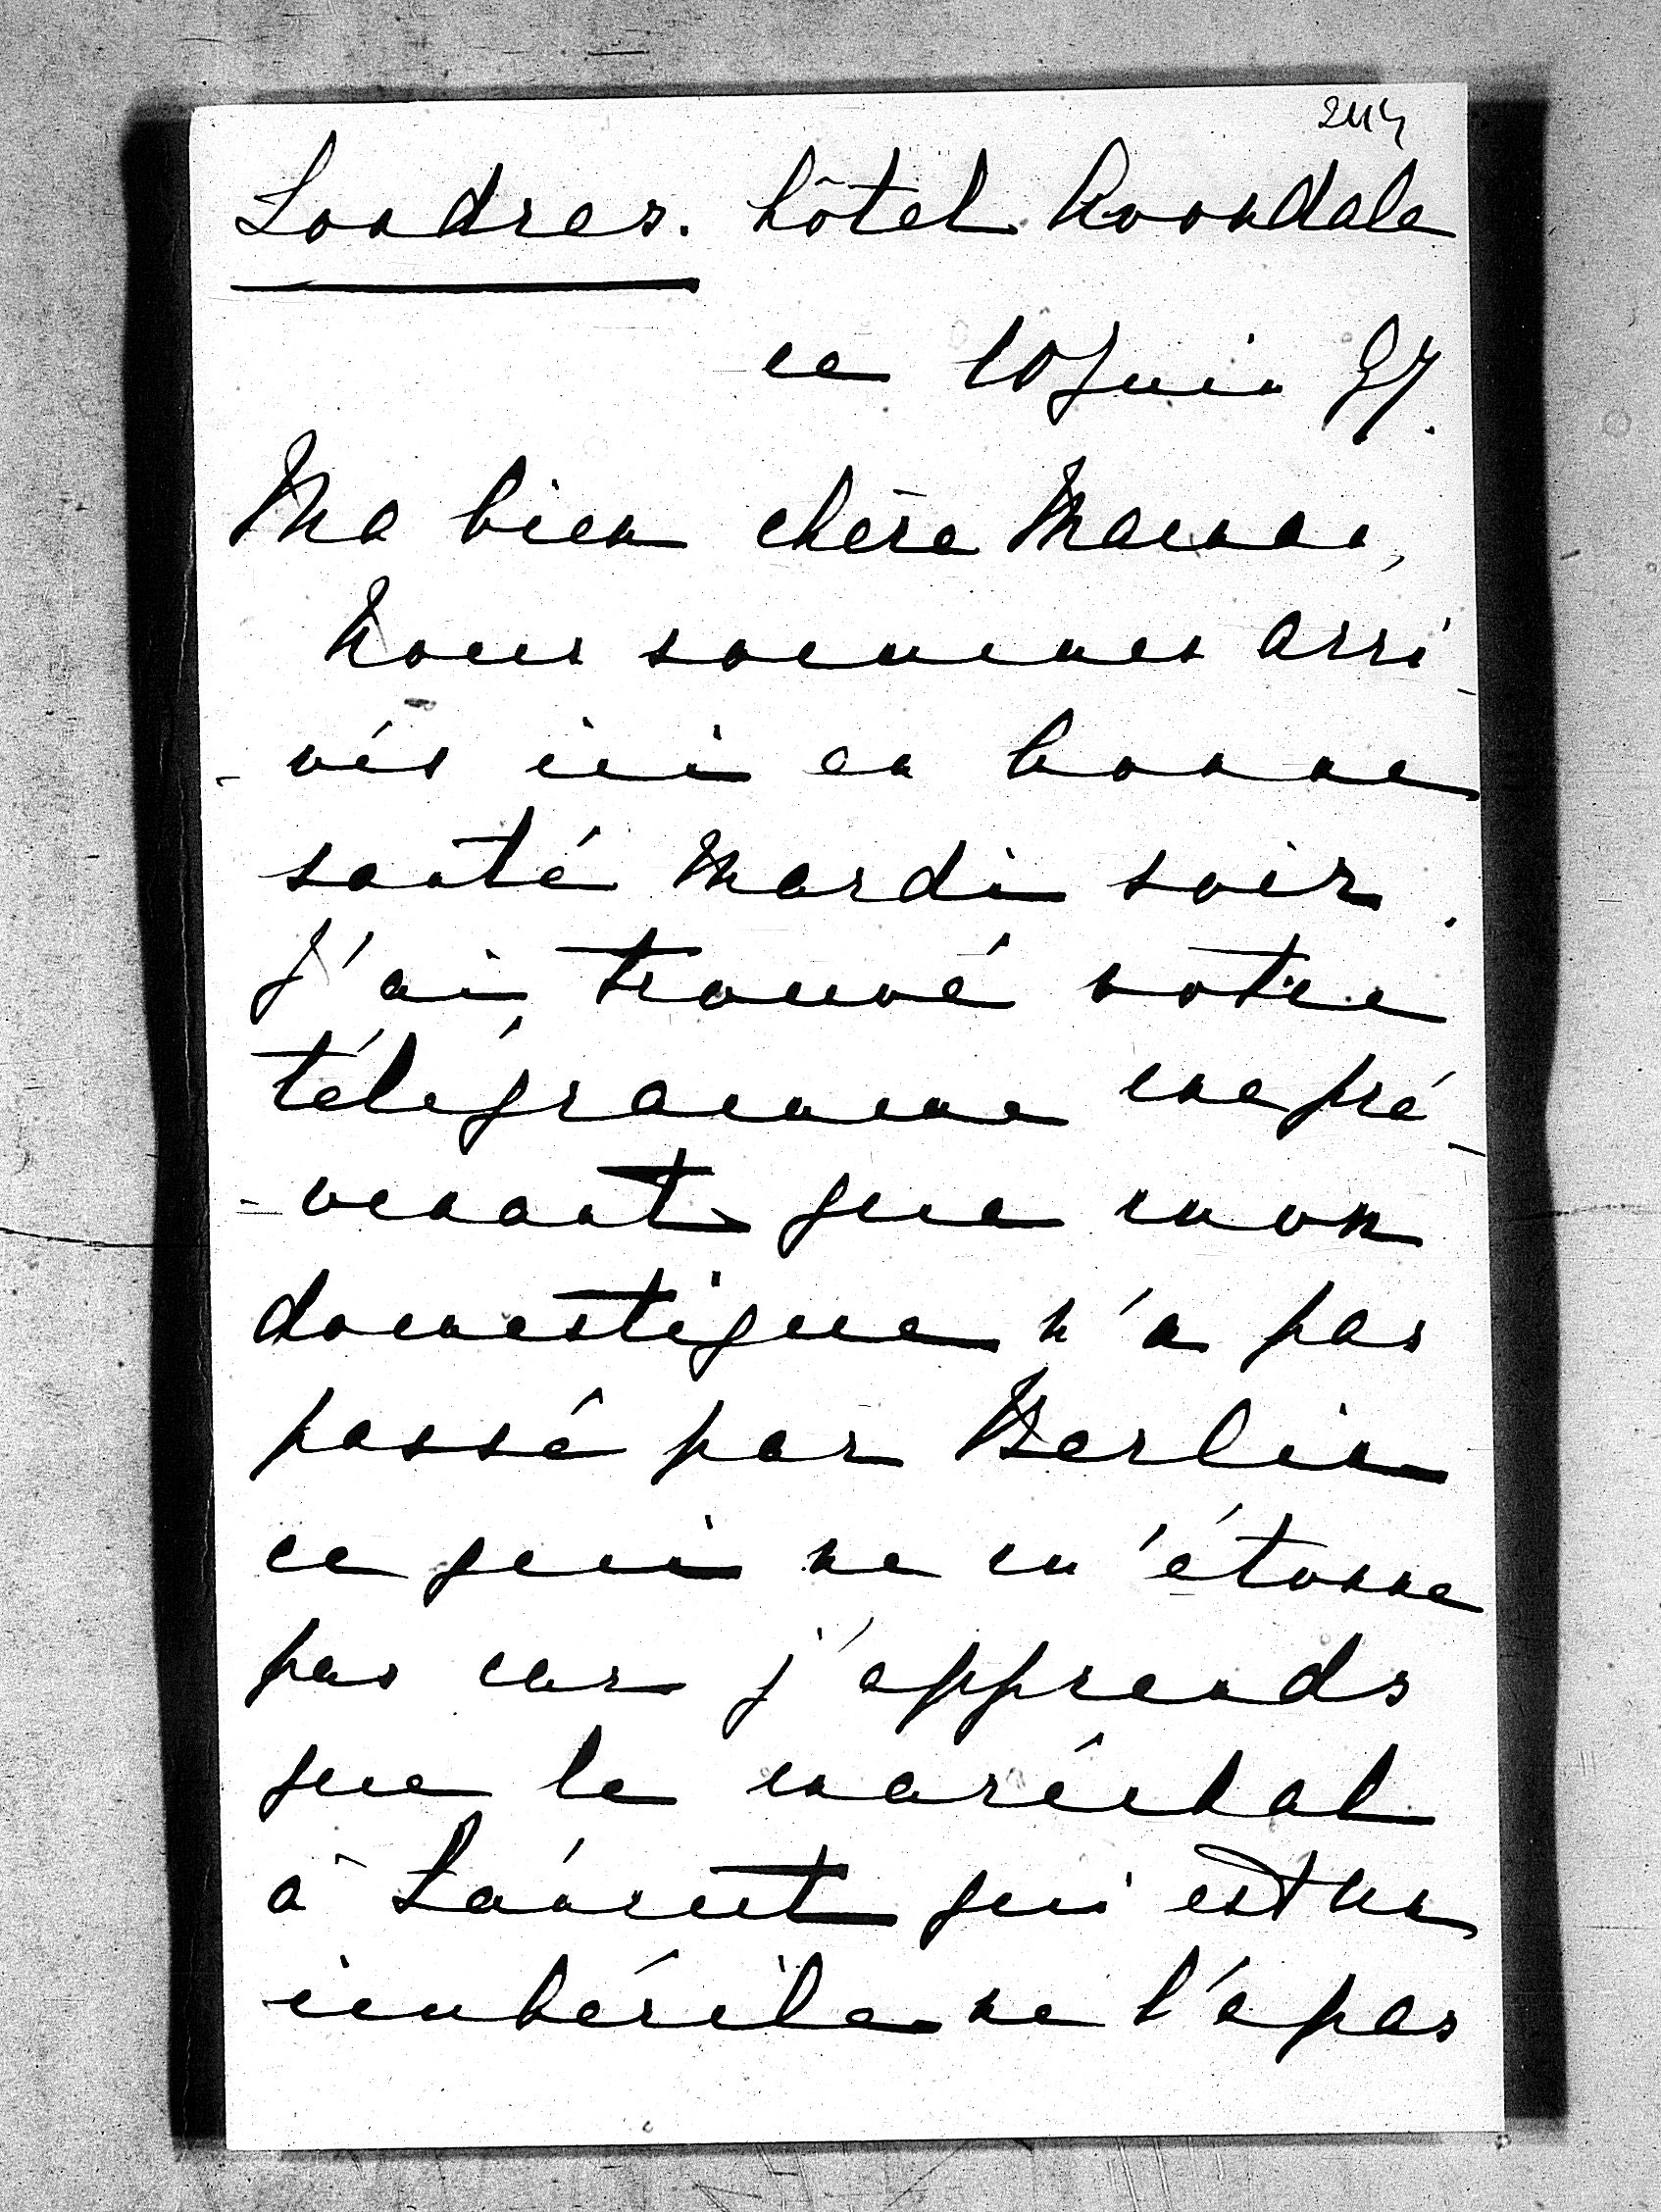 Londres. hôtel Roondale
ce 10 Juin 97.
Ma bien chère Maman,
Nous sommes arri-
-vés ici en bonne
santé Mardi soir.
J'ai trouvé votre
télégramme me pré-
-venant que mon
domestique n'a pas
passé par Berlin
ce qui ne m'étonne
pas car j'apprends
que le maréchal
à qui est un
imbécile ne l'a pas